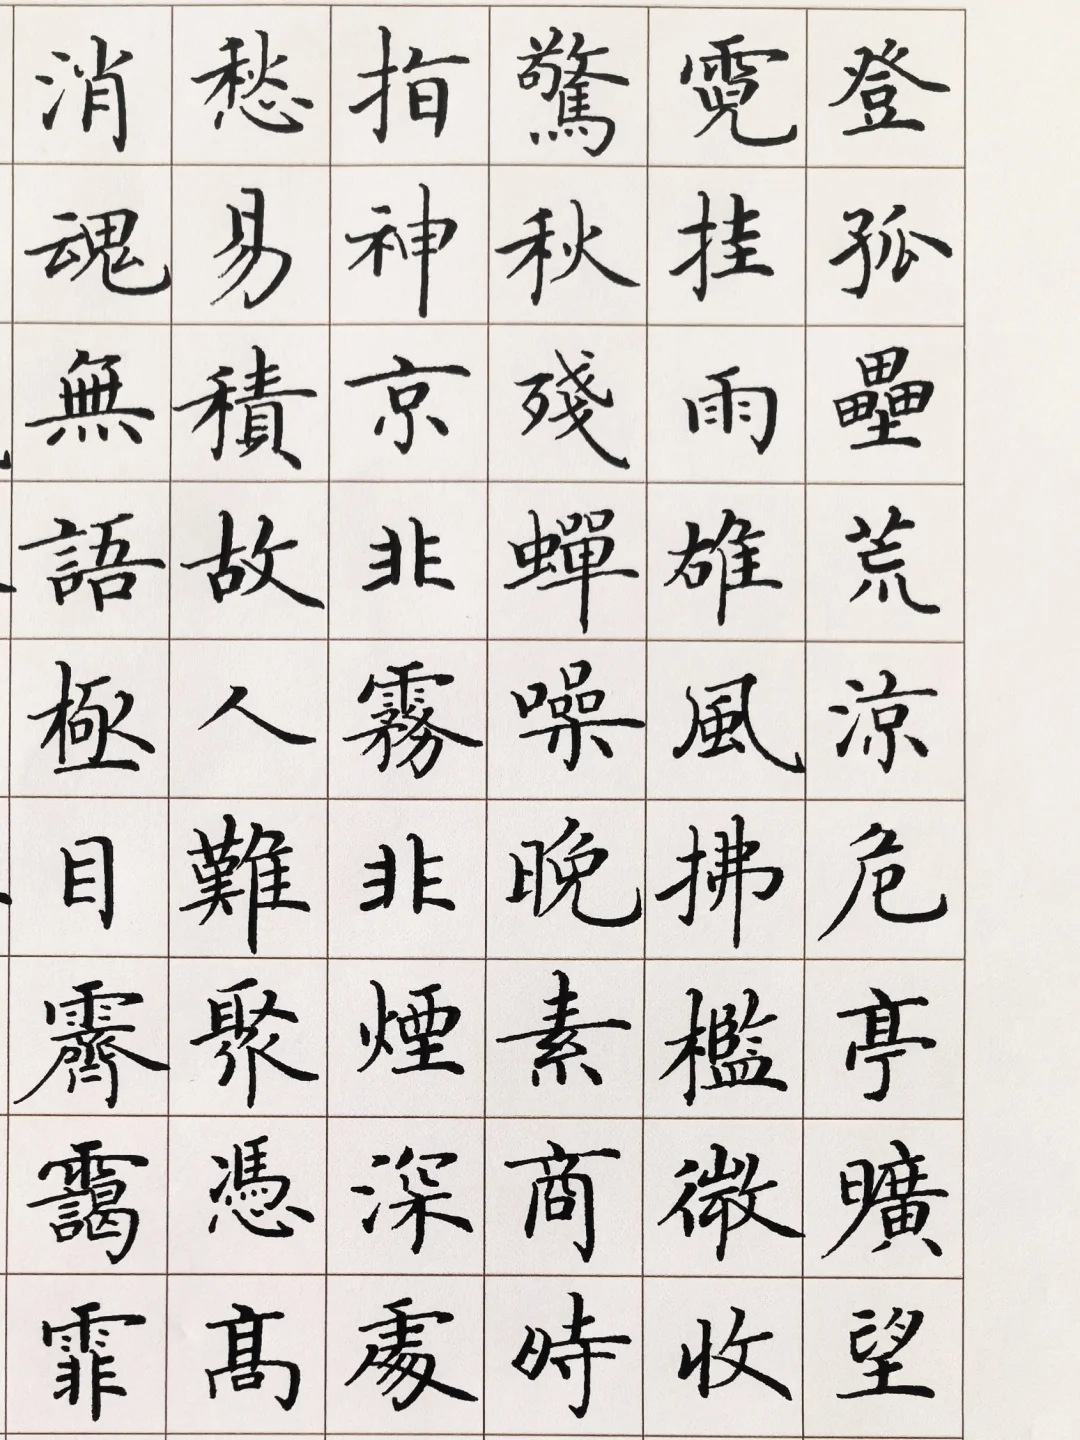 登孤壘荒涼危亭曠望
霓挂雨雄風拂檻微收
驚秋殘蟬噪晚素商時
指神京非霧非煙深處
愁易積故人難聚憑高
消魂無語極目霽靄霏